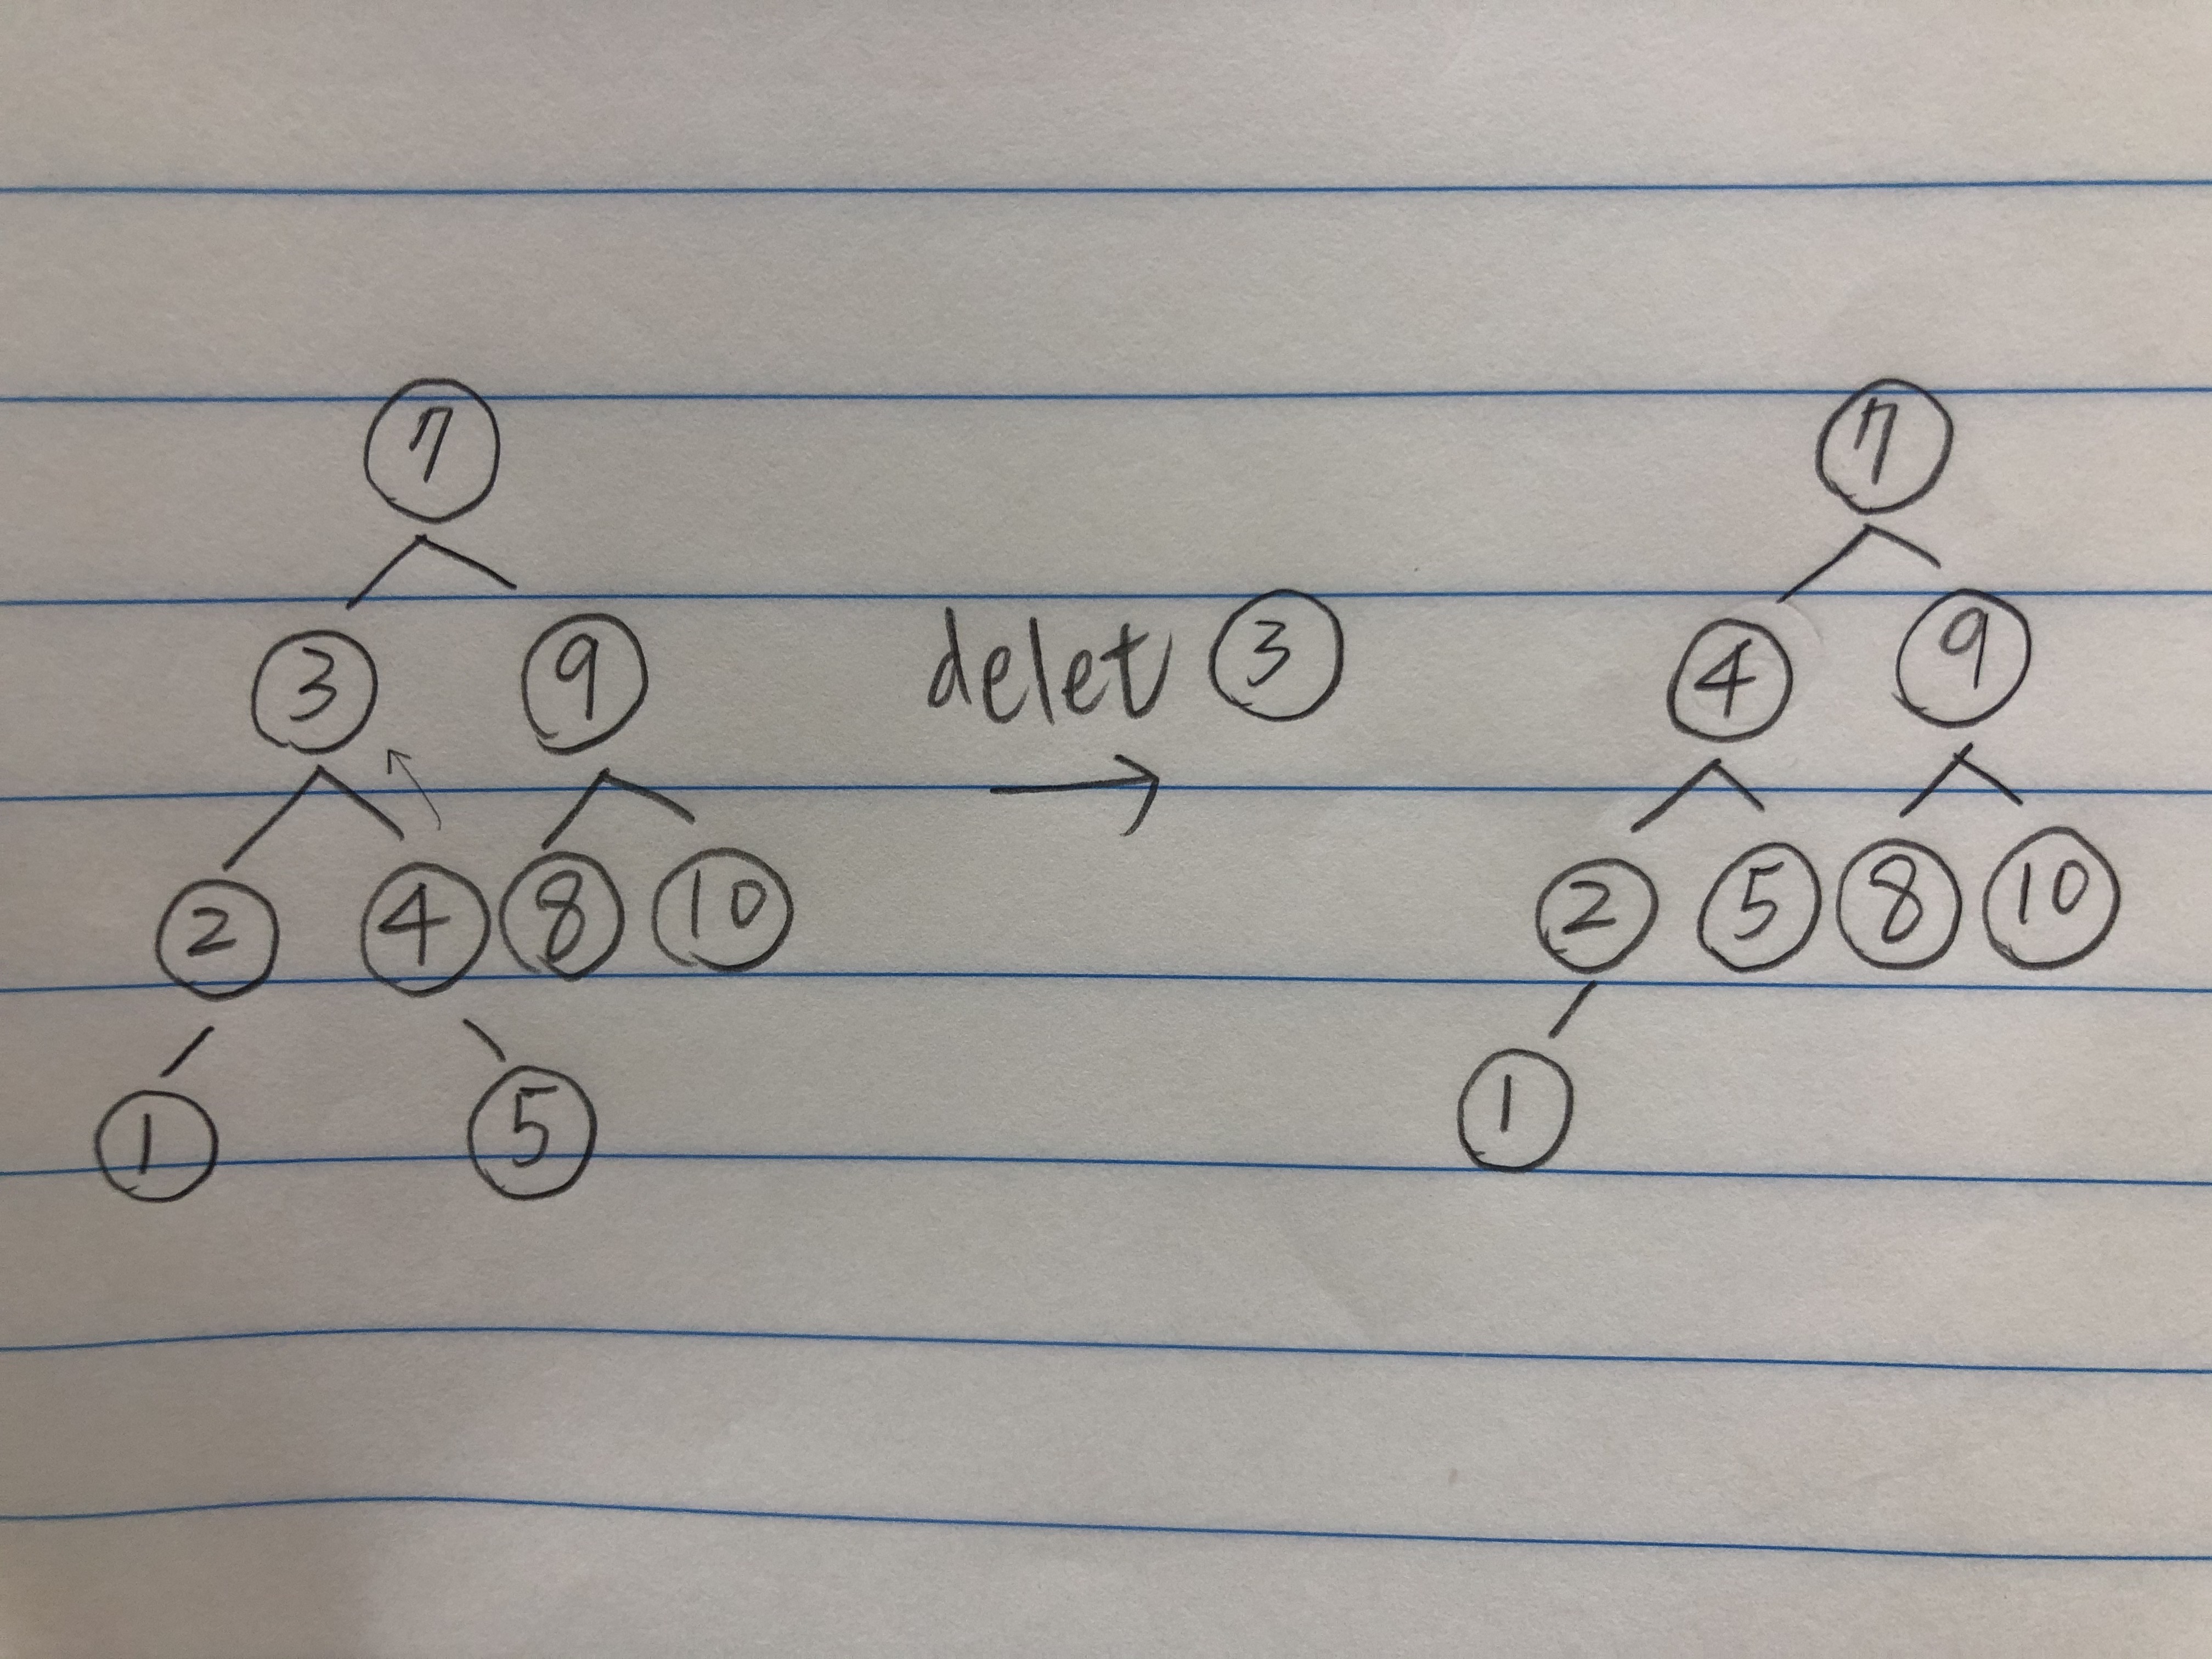 7
3 9
2 4 8 10
1 5
delet 3
7
4 9
2 5 8 10
1